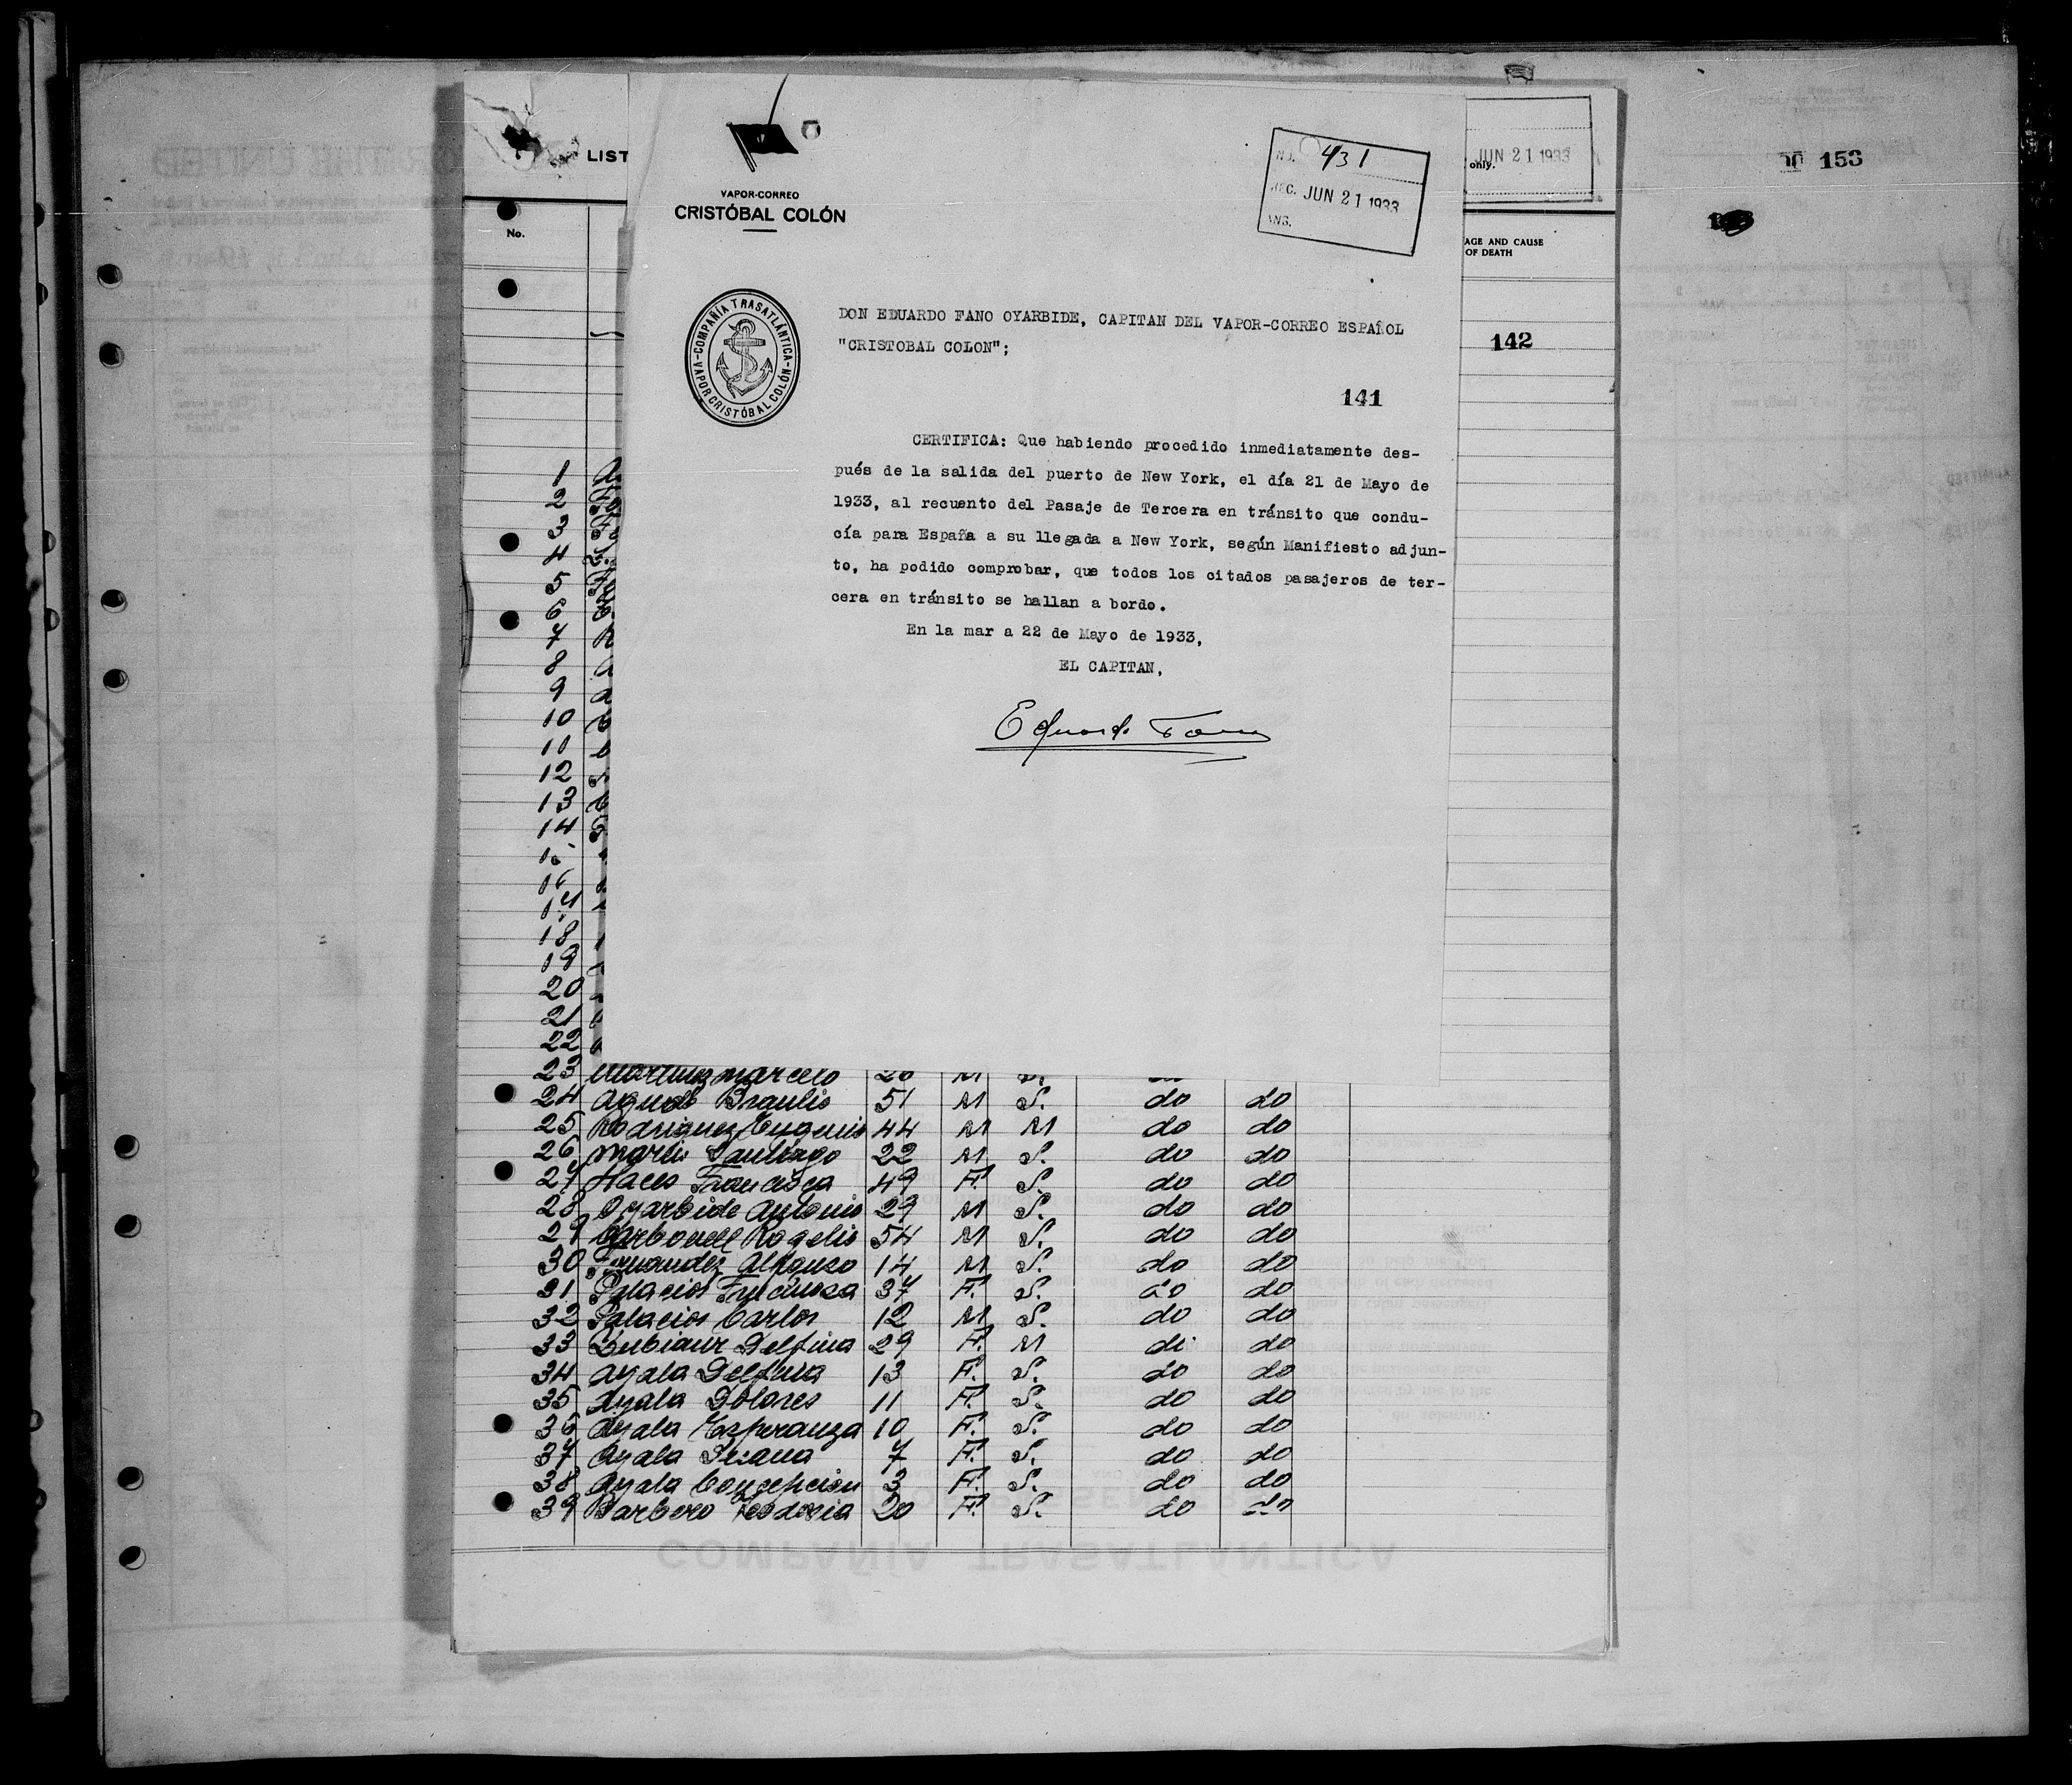 LIST
No.
VAPOR-CORREO
CRISTÓBAL COLÓN
NO. 431
REC. JUN 21 1933
ANS.
only.
JUN 21 1933
AGE AND CAUSE
OF DEATH
153
142
COMPAÑÍA TRASATLÁNTICA
VAPOR CRISTÓBAL COLÓN
DON EDUARDO FANO OYARBIDE, CAPITAN DEL VAPOR-CORREO ESPAÑOL
"CRISTOBAL COLON";
141
CERTIFICA: Que habiendo procedido inmediatamente des-
pués de la salida del puerto de New York, el día 21 de Mayo de
1933, al recuento del Pasaje de Tercera en tránsito que condu-
cía para España a su llegada a New York, según Manifiesto adjun-
to, ha podido comprobar, que todos los citados pasajeros de ter-
cera en tránsito se hallan a bordo.
En la mar a 22 de Mayo de 1933,
EL CAPITAN,
Eduardo Fano
1
2
3
4
5
6
7
8
9
10
11
12
13
14
15
16
17
18
19
20
21
22
23 Martinez Marcelo 26 M S.
24 Agudo Braulio 51 M S. do do
25 Rodriguez Eugenio 44 M M do do
26 Martin Santiago 22 M S. do do
27 Haces Francisca 49 F. S. do do
28 Oyarbide Antonio 29 M S. do do
29 Carbonell Rogelio 54 M S. do do
30 Fernandez Alfonso 14 M S. do do
31 Palacios 37 F. S. do do
32 Palacios Carlos 12 M S. do do
33 Zubiaur Delfina 29 F. M do do
34 Ayala Delfina 13 F. S. do do
35 Ayala Dolores 11 F. S. do do
36 Ayala Esperanza 10 F. S. do do
37 Ayala 7 F. S. do do
38 Ayala Concepcion 3 F. S. do do
39 Barbero Teodosia 20 F. S. do do
COMPAÑÍA TRASATLÁNTICA